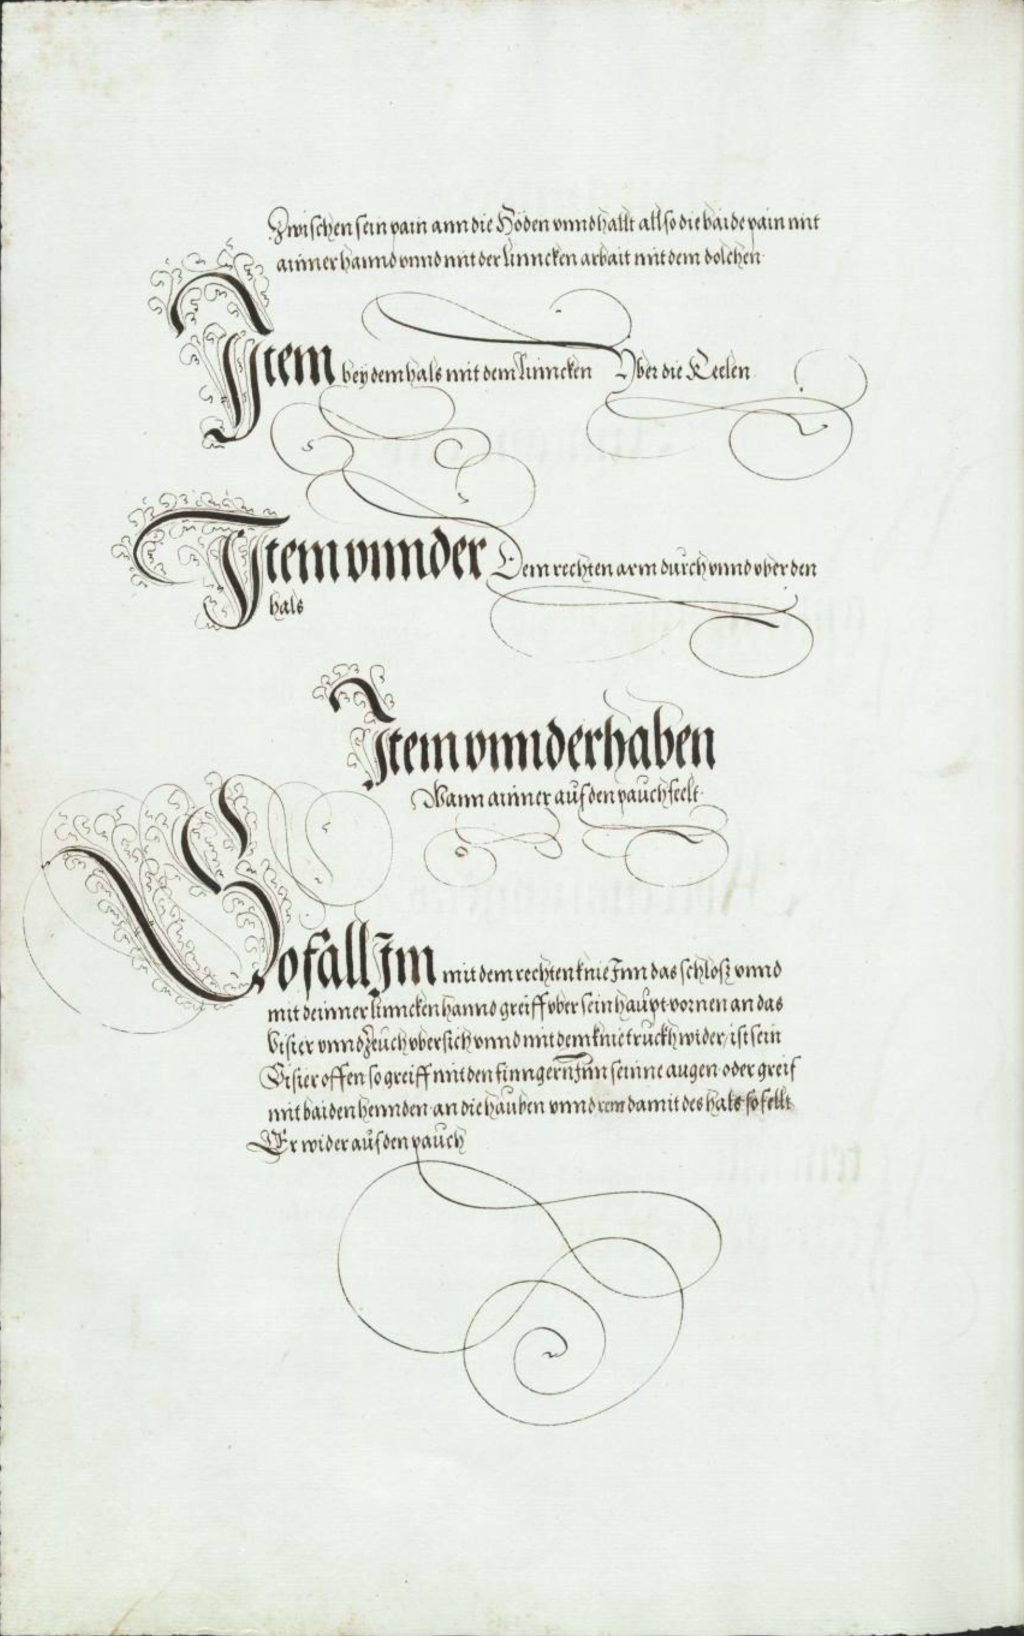 Zwischen sein pain ann die Hoden vnnd hallt allso die baide pain mit
ainner hannd vnnd mit der linncken arbait mit dem dolchen
Item bey dem hals mit dem linncken Vber die Keelen
Item vnnder Dem rechten arm durch vnnd vber den
hals
Item vnnderhaben
Wann ainner auf den pauch feelt
So fall Im mit dem rechten knie Inn das schlosz vnnd
mit deinner linncken hannd greiff vber sein haupt vornen an das
Visier vnnd zeuch vbersich vnnd mit dem knie truckh wider / ist sein
Visier offen so greiff mit den finngern Inn seinne augen oder greif
mit baiden hennden an die hauben vnnd rem damit des hals so fellt
Er wider auf den pauch